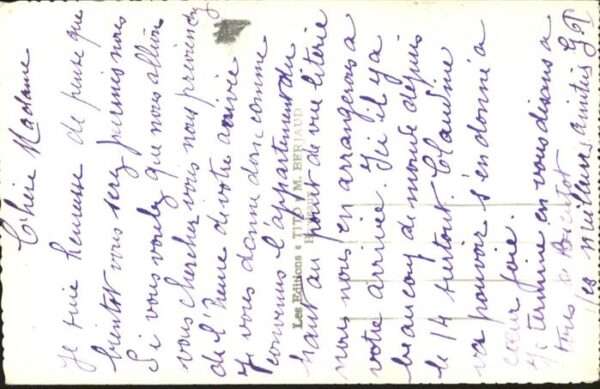 Chère Madame
Je suis heureuse de pense que
bientôt vous serez parmis nous
Si vous voulez que nous allions
vous chercher vous nous préviendrez
de l'heure de votre arrivée
Je vous donne donc comme
convenus l'appartement du
haut au point de vue literie
nous nous en arrangerons a
votre arrivée. Ici il y a
beaucoup de monde depuis
le 14 surtout. Claudine
va pouvoir s'en donné a
cœur joie.
Je termine en vous disans a
tous a Bientot
les meilleurs amitiés
Les Editions « TITO » M. BERJAUD